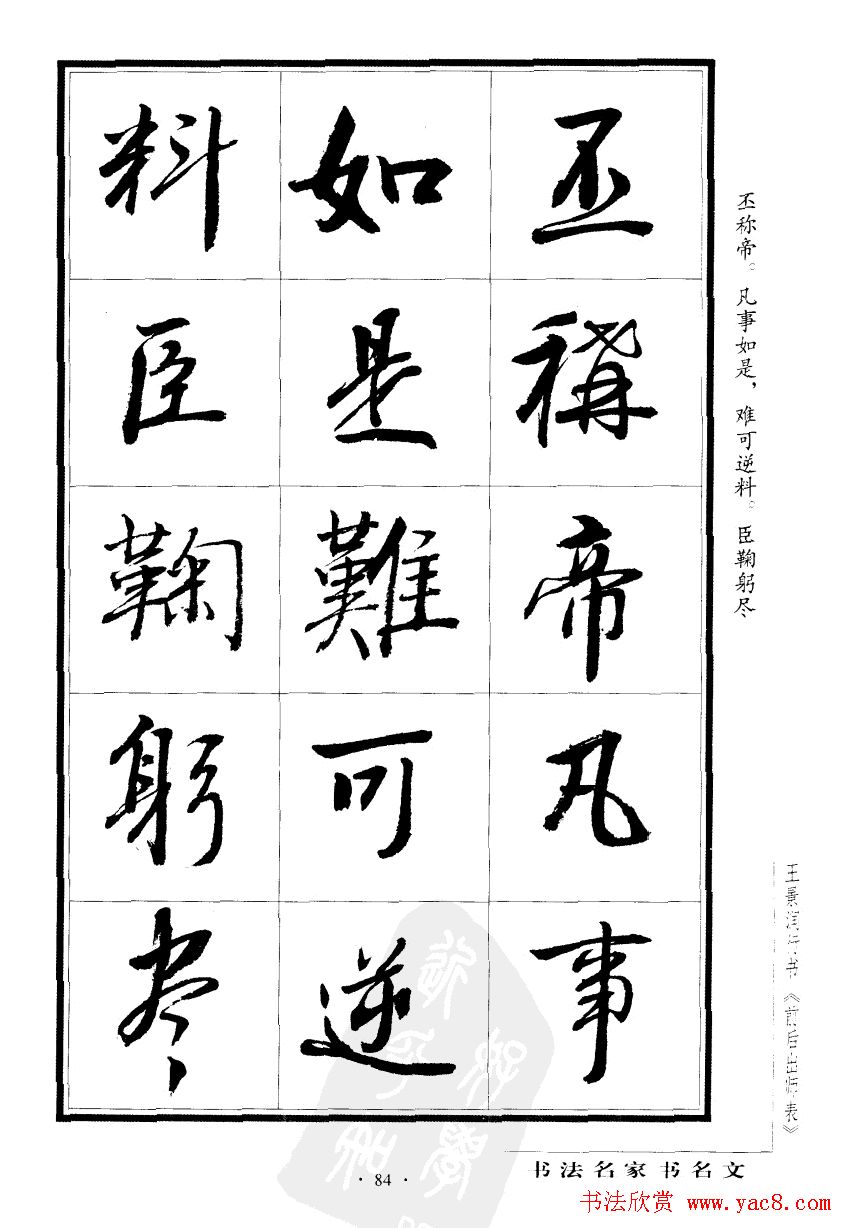 丕稱帝凡事
如是難可逆
料臣鞠躬尽
丕称帝。凡事如是，难可逆料。臣鞠躬尽
王景润行书《前后出师表》
书法名家书名文
· 84 ·
书法欣赏 www.yac8.com